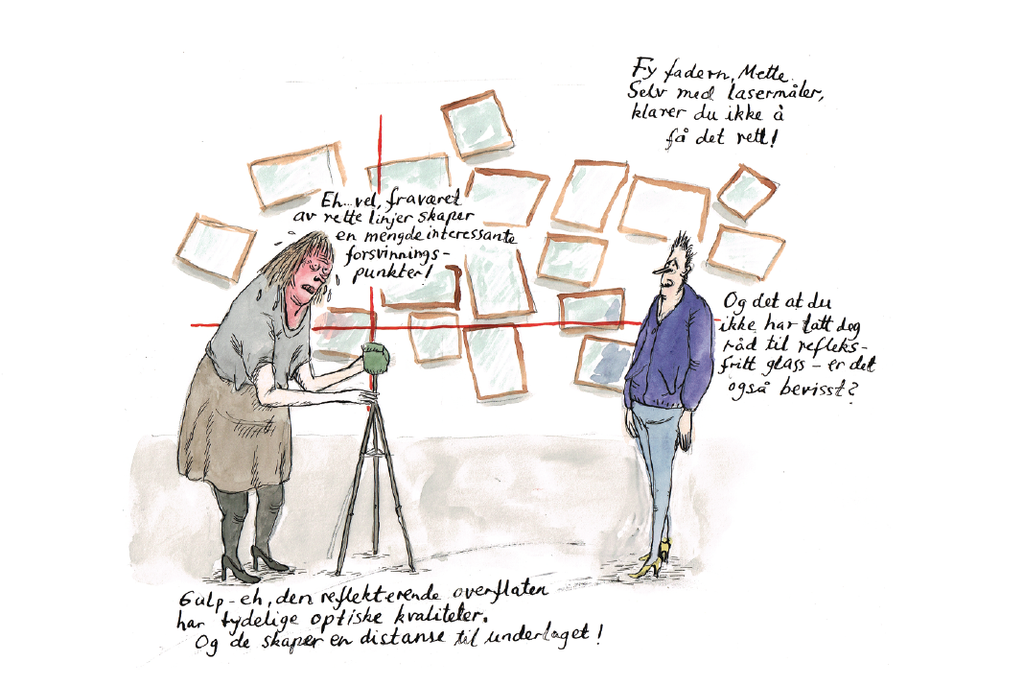 Fy fadern, Mette.
Selv med lasermåler,
klarer du ikke å
få det rett!
Eh...vel, fraværet
av rette linjer skaper
en mengde interessante
forsvinnings-
punkter!
Og det at du
ikke har tatt deg
råd til refleks-
fritt glass – er det
også bevisst?
Gulp – eh, den reflekterende overflaten
har tydelige optiske kvaliteter.
Og de skaper en distanse til underlaget!